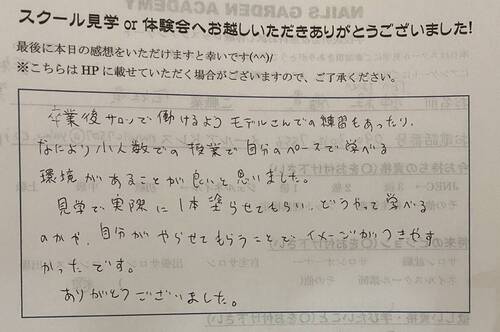 スクール見学 or 体験会へお越しいただきありがとうございました!
最後に本日の感想をいただけますと幸いです(^^)/
※こちらは HP に載せていただく場合がございますので、ご了承ください。
卒業後サロンで働けるようモデルさんでの練習もあったり、
なにより少人数での授業で自分のペースで学べる
環境があることが良いと思いました。
見学で実際に1本塗らせてもらい、どうやって学べる
のかや、自分がやらせてもらうことでイメージがつきやす
かったです。
ありがとうございました。